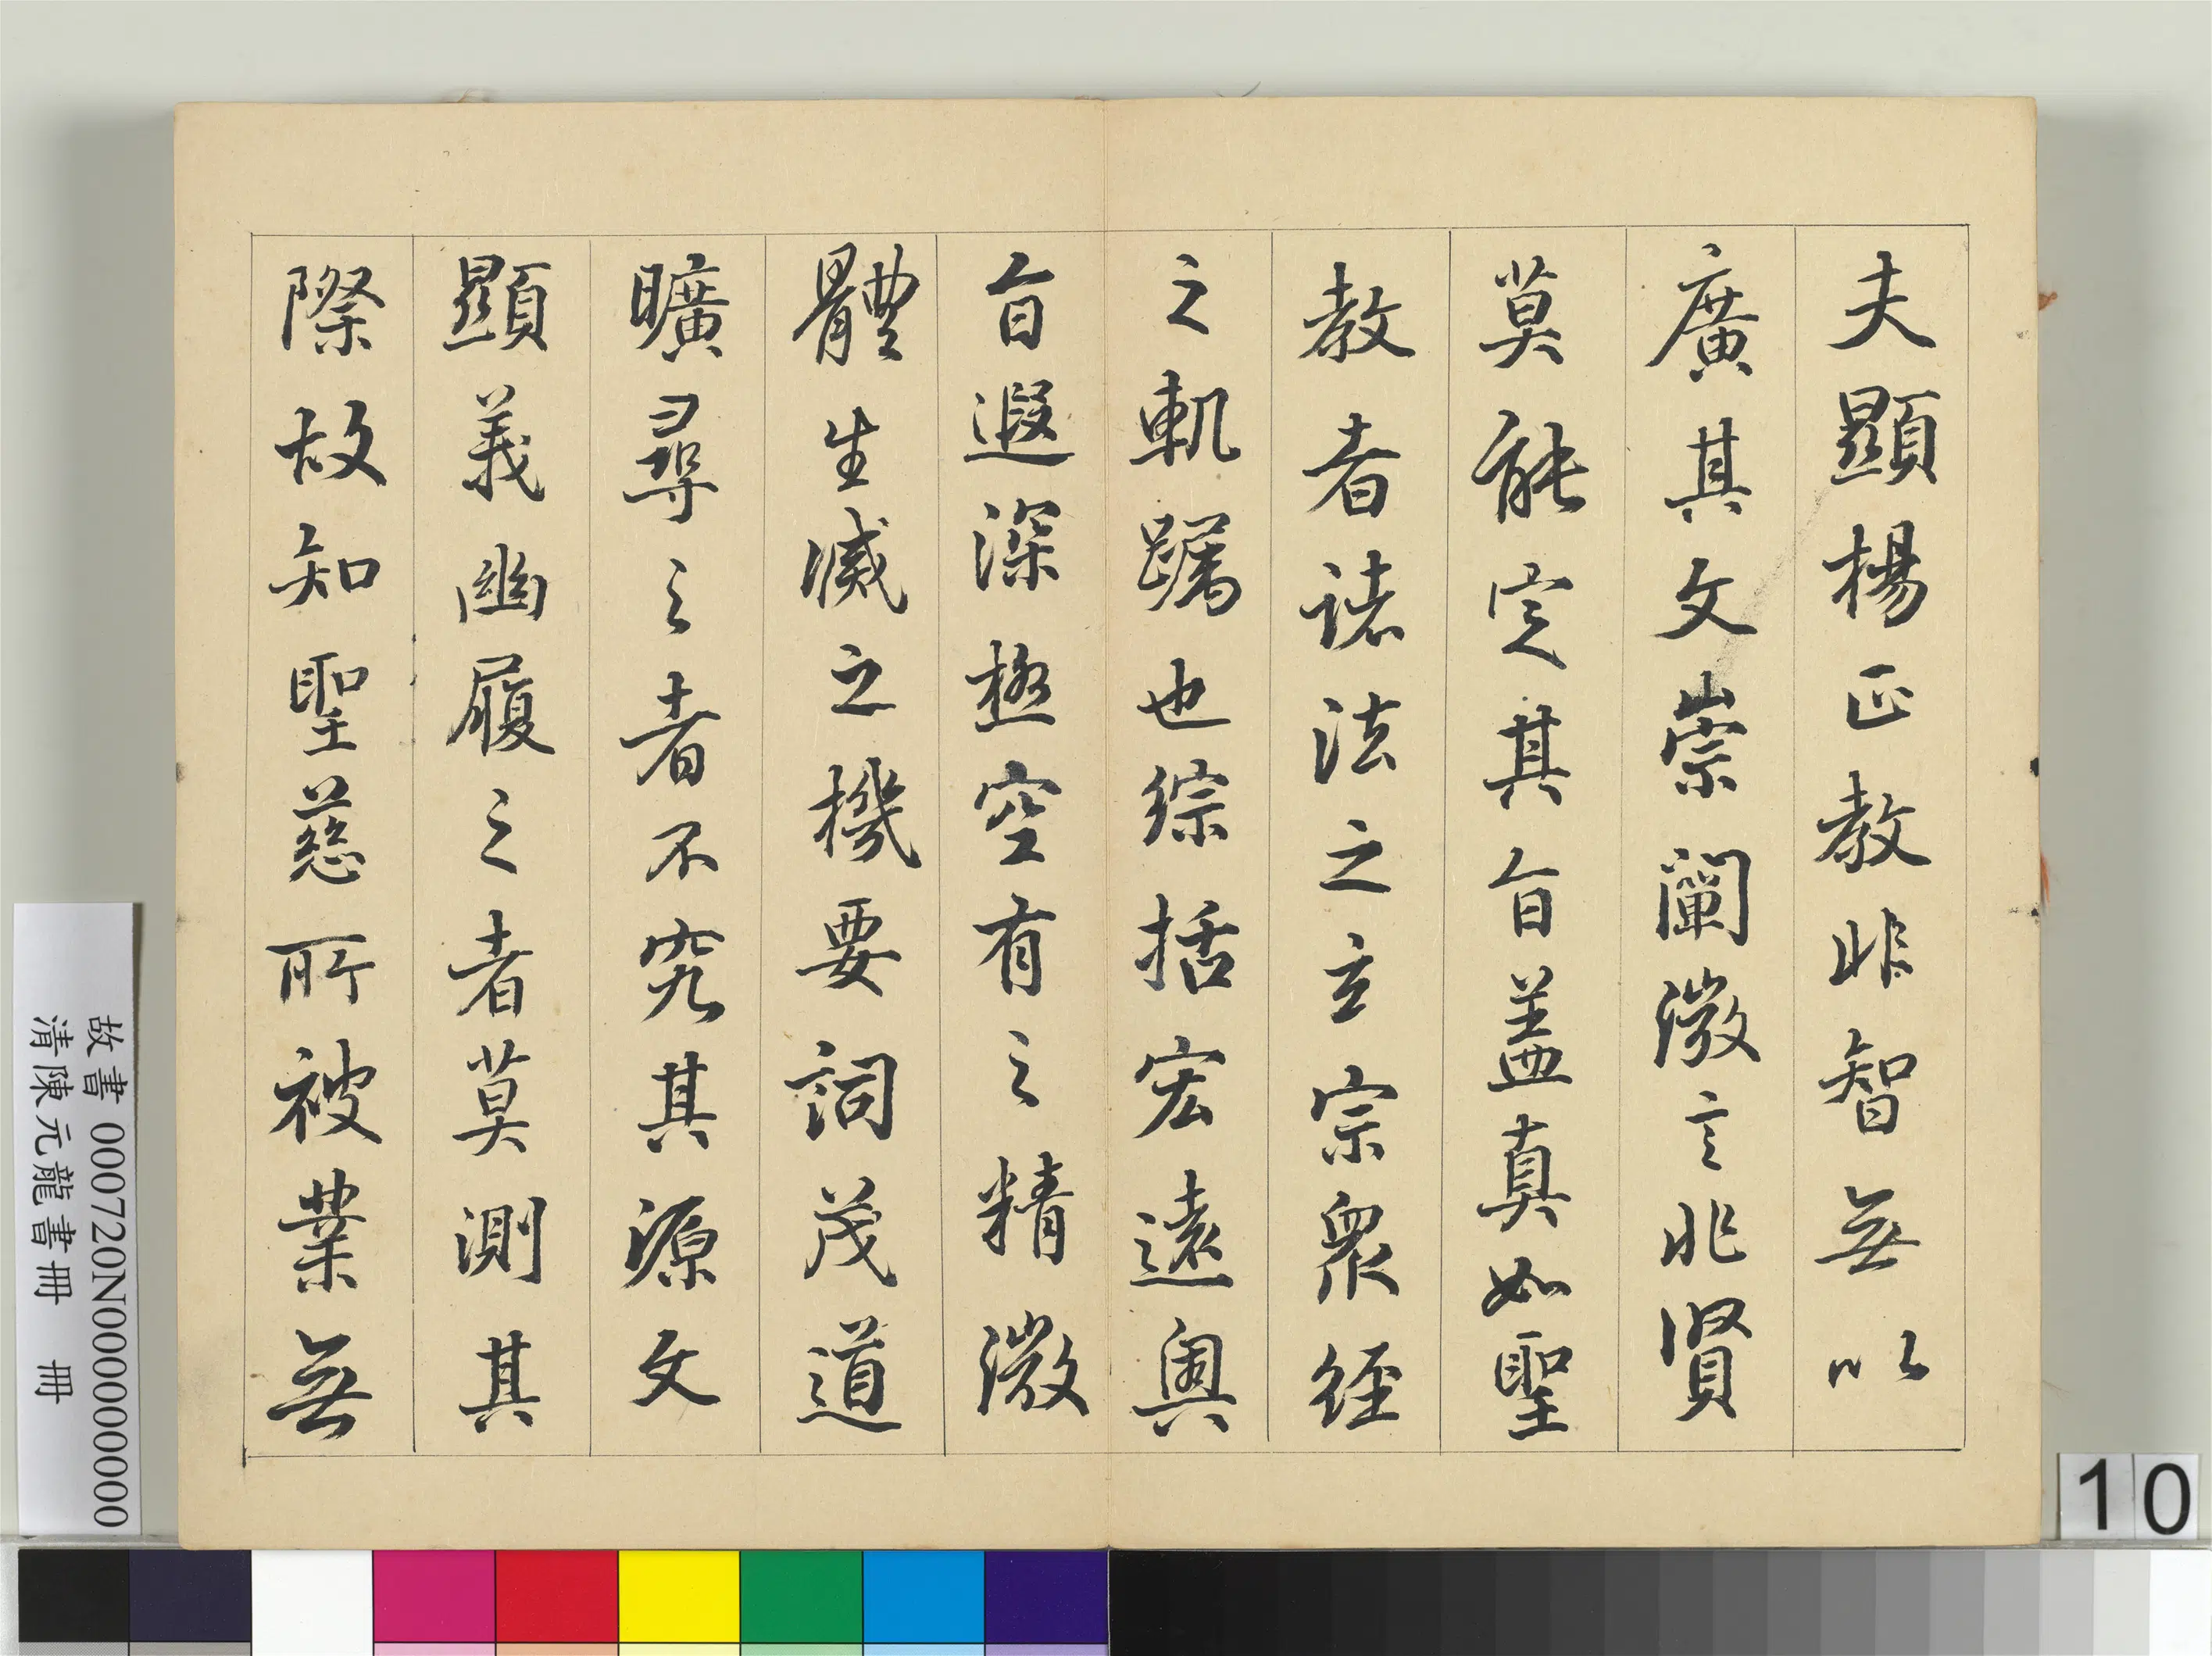 夫顯楊正教非智無以
廣其文崇闡微言非賢
莫能定其旨蓋真如聖
教者諸法之玄宗衆經
之軌躅也綜括宏遠奧
旨遐深極空有之精微
體生滅之機要詞茂道
曠尋之者不究其源文
顯義幽履之者莫測其
際故知聖慈所被業無
故書 000720N000000000
清陳元龍書冊 冊
10